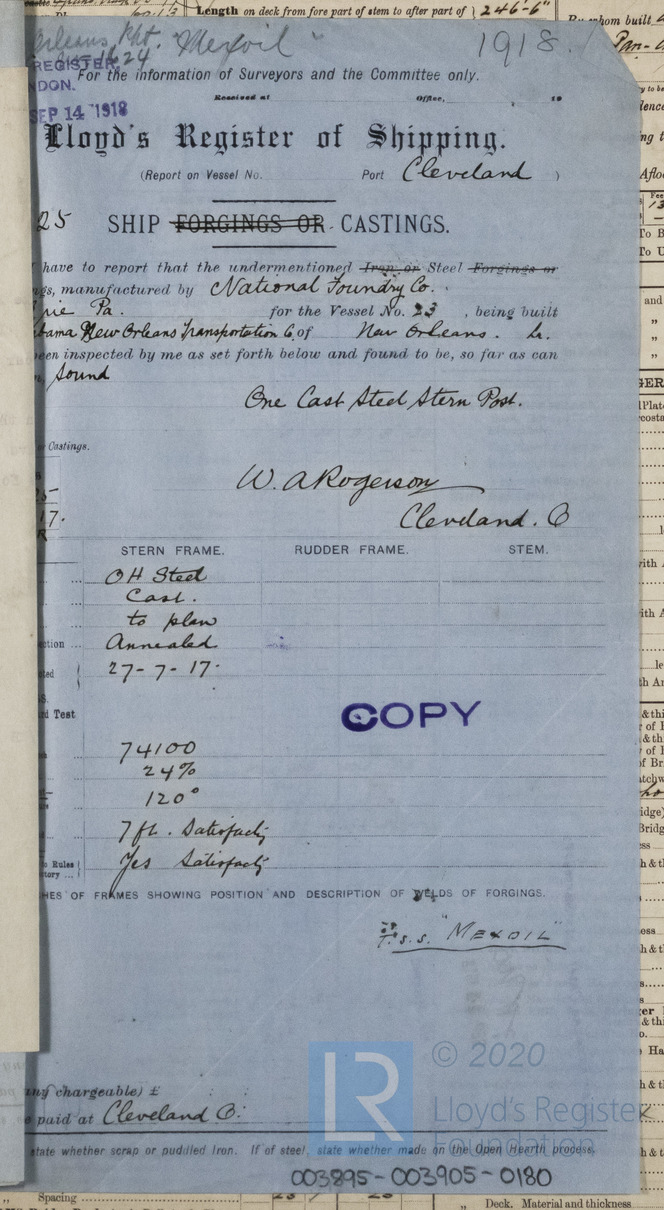 Length on deck from fore part of stem to after part of } 246'-6"
whom built
Orleans Rpt. "Mexoil" 1918.
1624
REGISTER,
NDON.
SEP 14 1918
For the information of Surveyors and the Committee only.
Received at Office, 19
Lloyd's Register of Shipping.
(Report on Vessel No. Port Cleveland )
25 SHIP FORGINGS OR CASTINGS.
have to report that the undermentioned Iron or Steel Forgings or
ngs, manufactured by National Foundry Co.
rie Pa. for the Vessel No. 23, being built
bama New Orleans Transportation Co of New Orleans. La.
een inspected by me as set forth below and found to be, so far as can
Sound
One Cast Steel Stern Post.
Castings.
W. A Rogerson
17.
Cleveland. O
STERN FRAME. RUDDER FRAME. STEM.
OH Steel
Cast.
to plan
ction Annealed
ted 27-7-17.
COPY
rd Test
74100
24%
120°
7 ft. Satisfacty
to Rules Yes Satisfacty
tory
HES OF FRAMES SHOWING POSITION AND DESCRIPTION OF WELDS OF FORGINGS.
T.S.S. "MEXOIL"
© 2020
Lloyd's Register
Foundation
any chargeable) £ : :
paid at Cleveland O.
state whether scrap or puddled Iron. If of steel, state whether made on the Open Hearth process.
003895-003905-0180
Spacing
Deck. Material and thickness